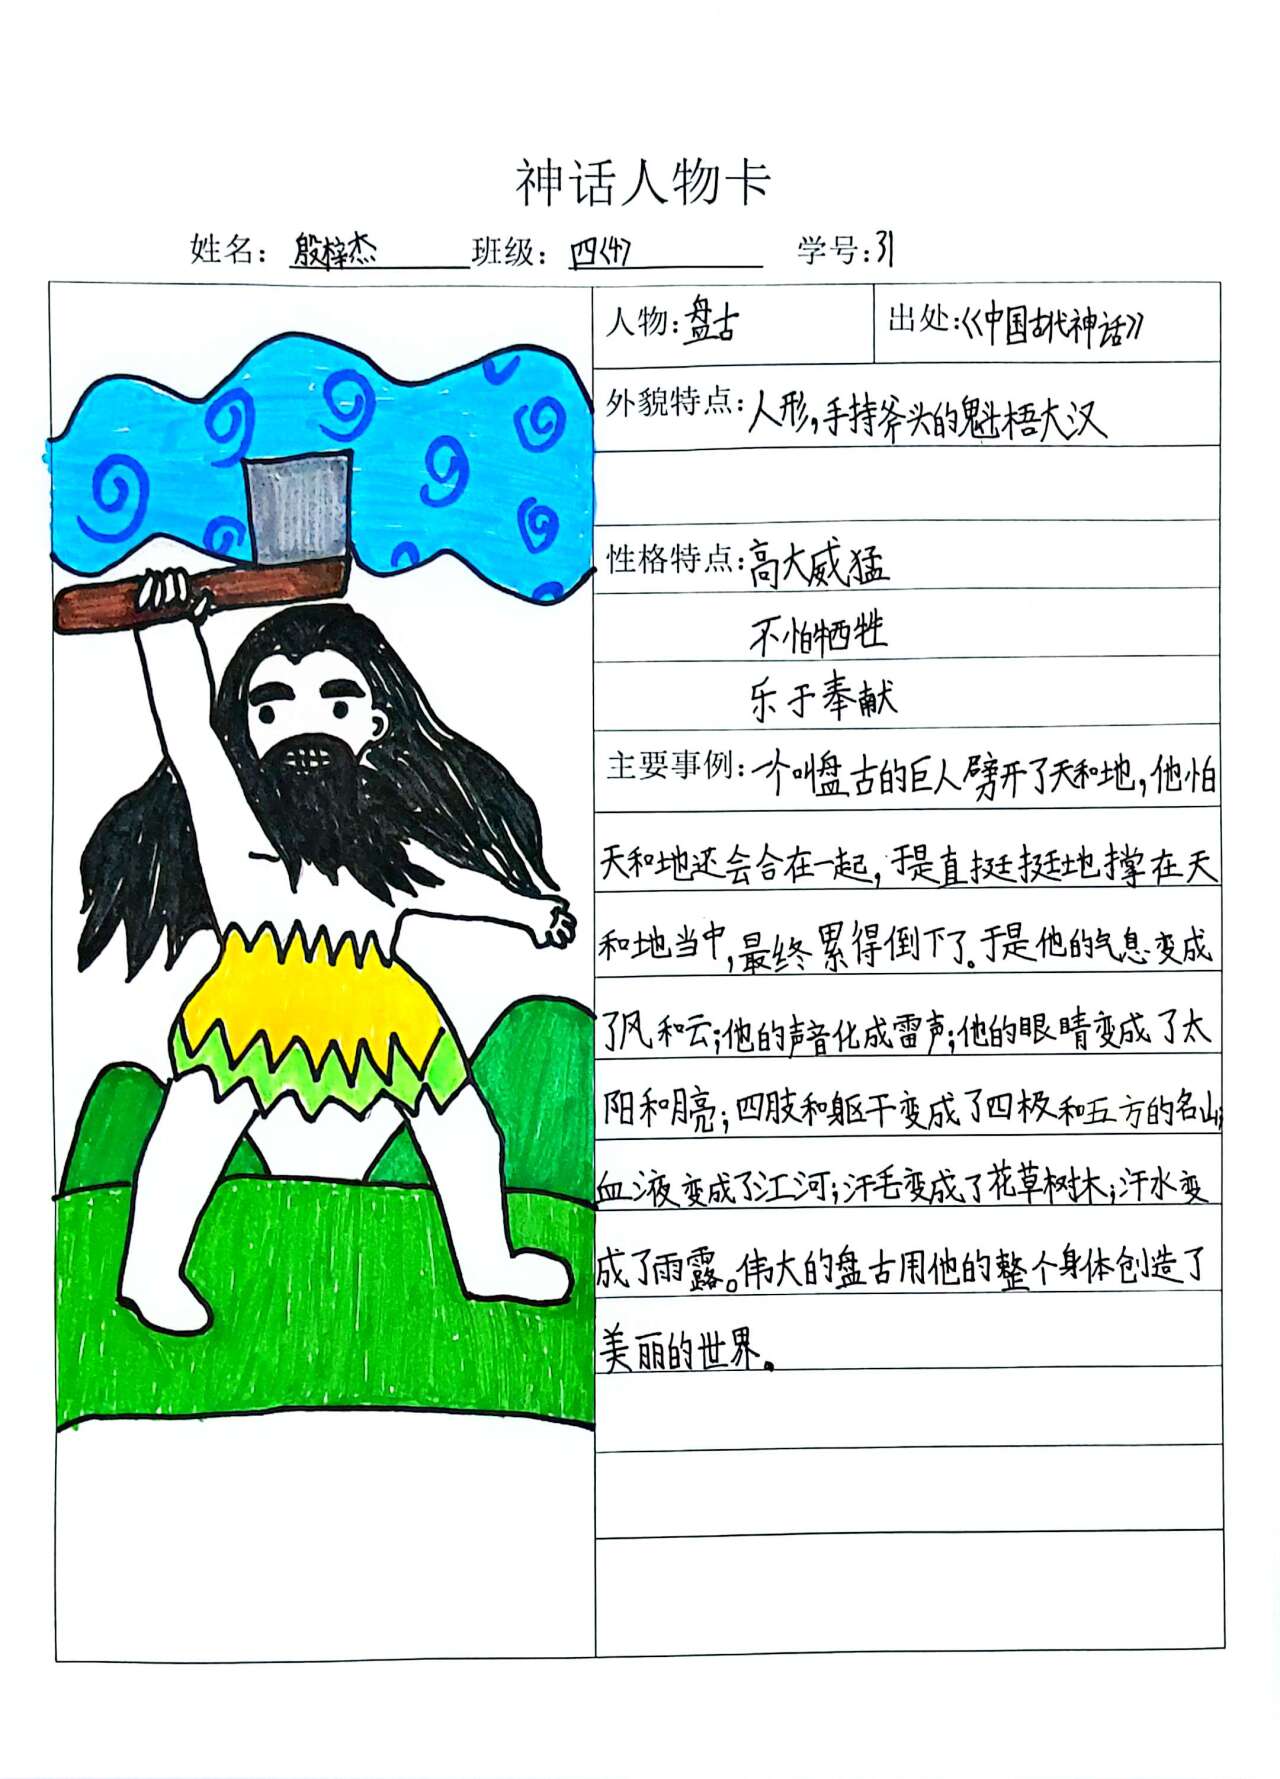 神话人物卡
姓名：殷梓杰 班级：四〈4〉 学号：31
人物：盘古 出处：《中国古代神话》
外貌特点：人形，手持斧头的魁梧大汉
性格特点：高大威猛
不怕牺牲
乐于奉献
主要事例：一个叫盘古的巨人劈开了天和地，他怕
天和地还会合在一起，于是直挺挺地撑在天
和地当中，最终累得倒下了。于是他的气息变成
了风和云；他的声音化成雷声；他的眼睛变成了太
阳和月亮；四肢和躯干变成了四极和五方的名山；
血液变成了江河；汗毛变成了花草树木；汗水变
成了雨露。伟大的盘古用他的整个身体创造了
美丽的世界。